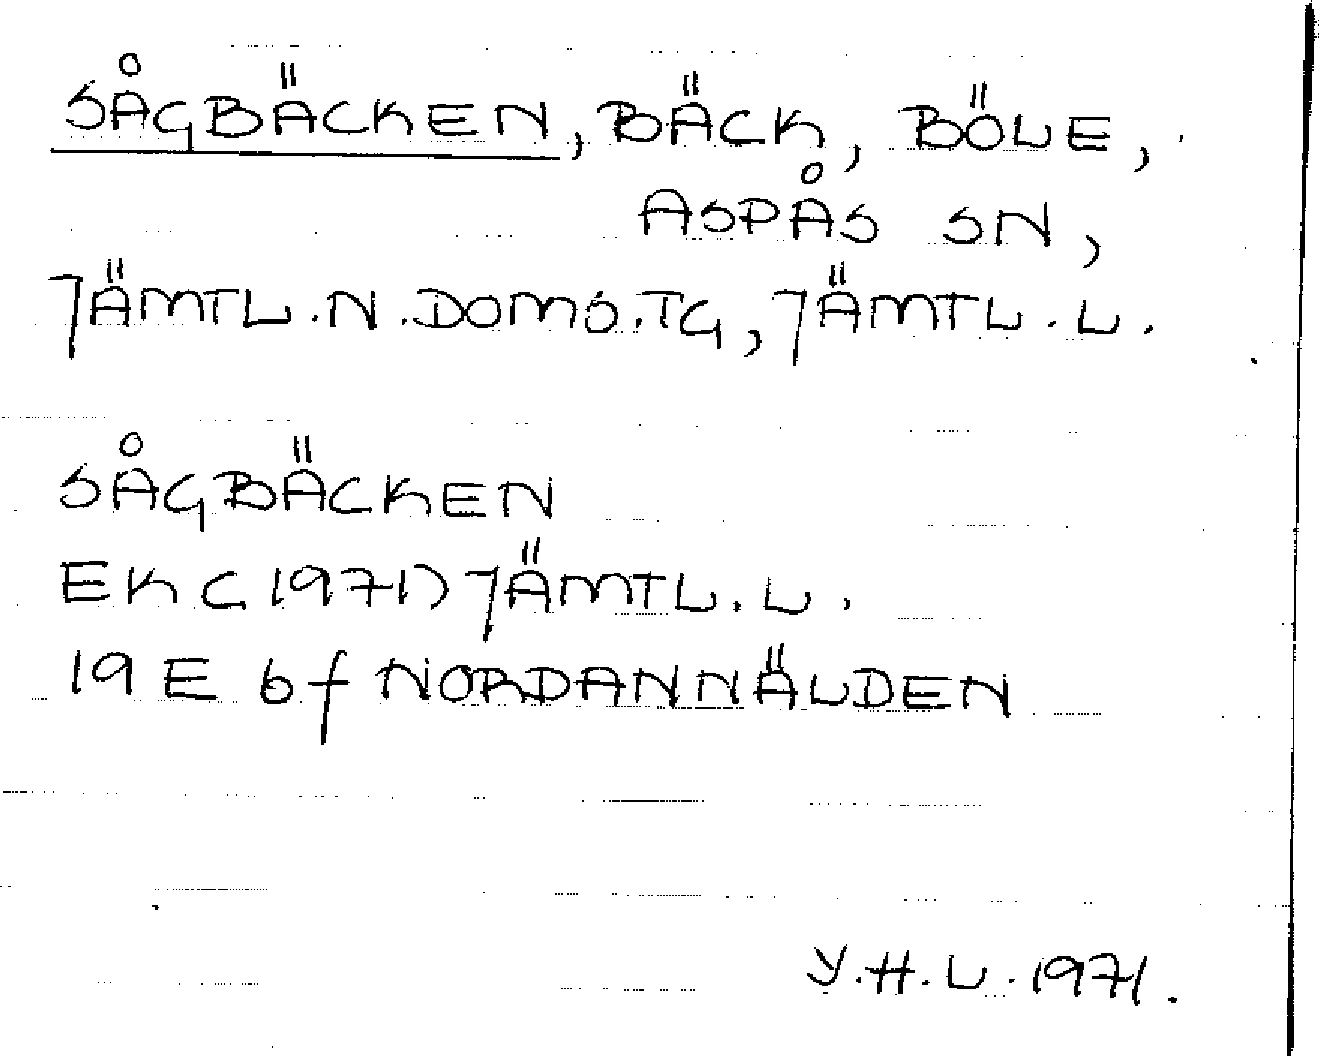 SÅGBÄCKEN, BÄCK, BÖLE,
ASPÅS SN,
JÄMTL.N.DOMS.TG, JÄMTL.L.
SÅGBÄCKEN
EK (1971) JÄMTL.L.
19 E 6f NORDANNÄLDEN
Y.H.L. 1971.